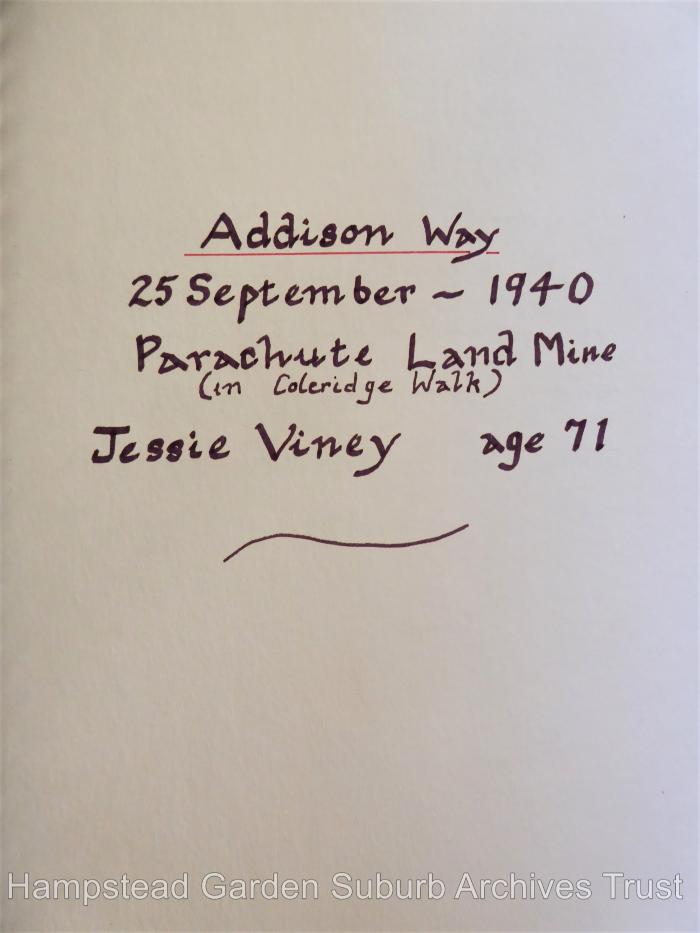 Addison Way
25 September ~ 1940
Parachute Land Mine
(in Coleridge Walk)
Jessie Viney age 71
Hampstead Garden Suburb Archives Trust